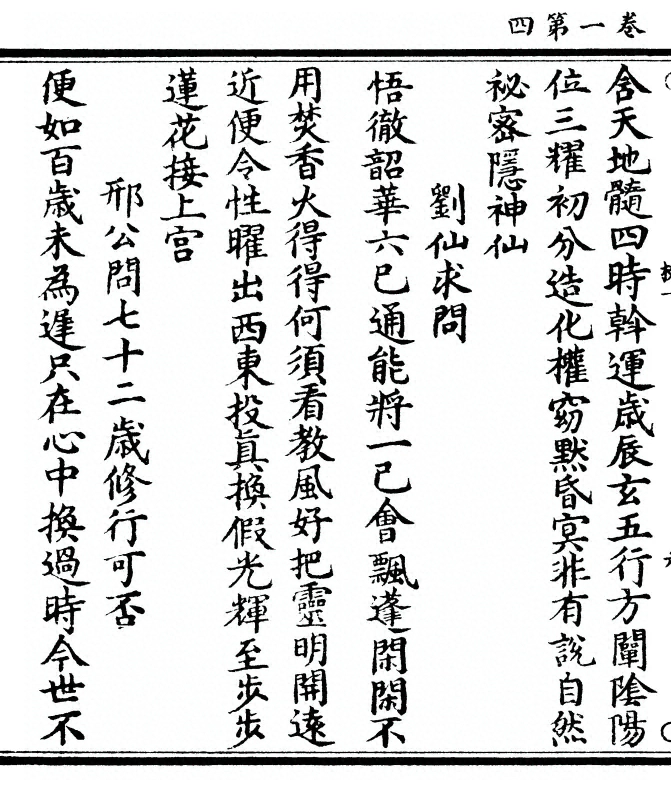 四第一卷
舍天地髓四時斡運歲辰玄五行方闡陰陽
位三耀初分造化權窈默昏冥非有說自然
祕密隱神仙
劉仙求問
悟徹韶華六已通能將一已會飄蓬閑閑不
用焚香火得得何須看教風好把靈明開遠
近便令性曜出西東投真換假光輝至步步
蓮花接上宮
邢公問七十二歲修行可否
便如百歲未為遲只在心中換過時今世不